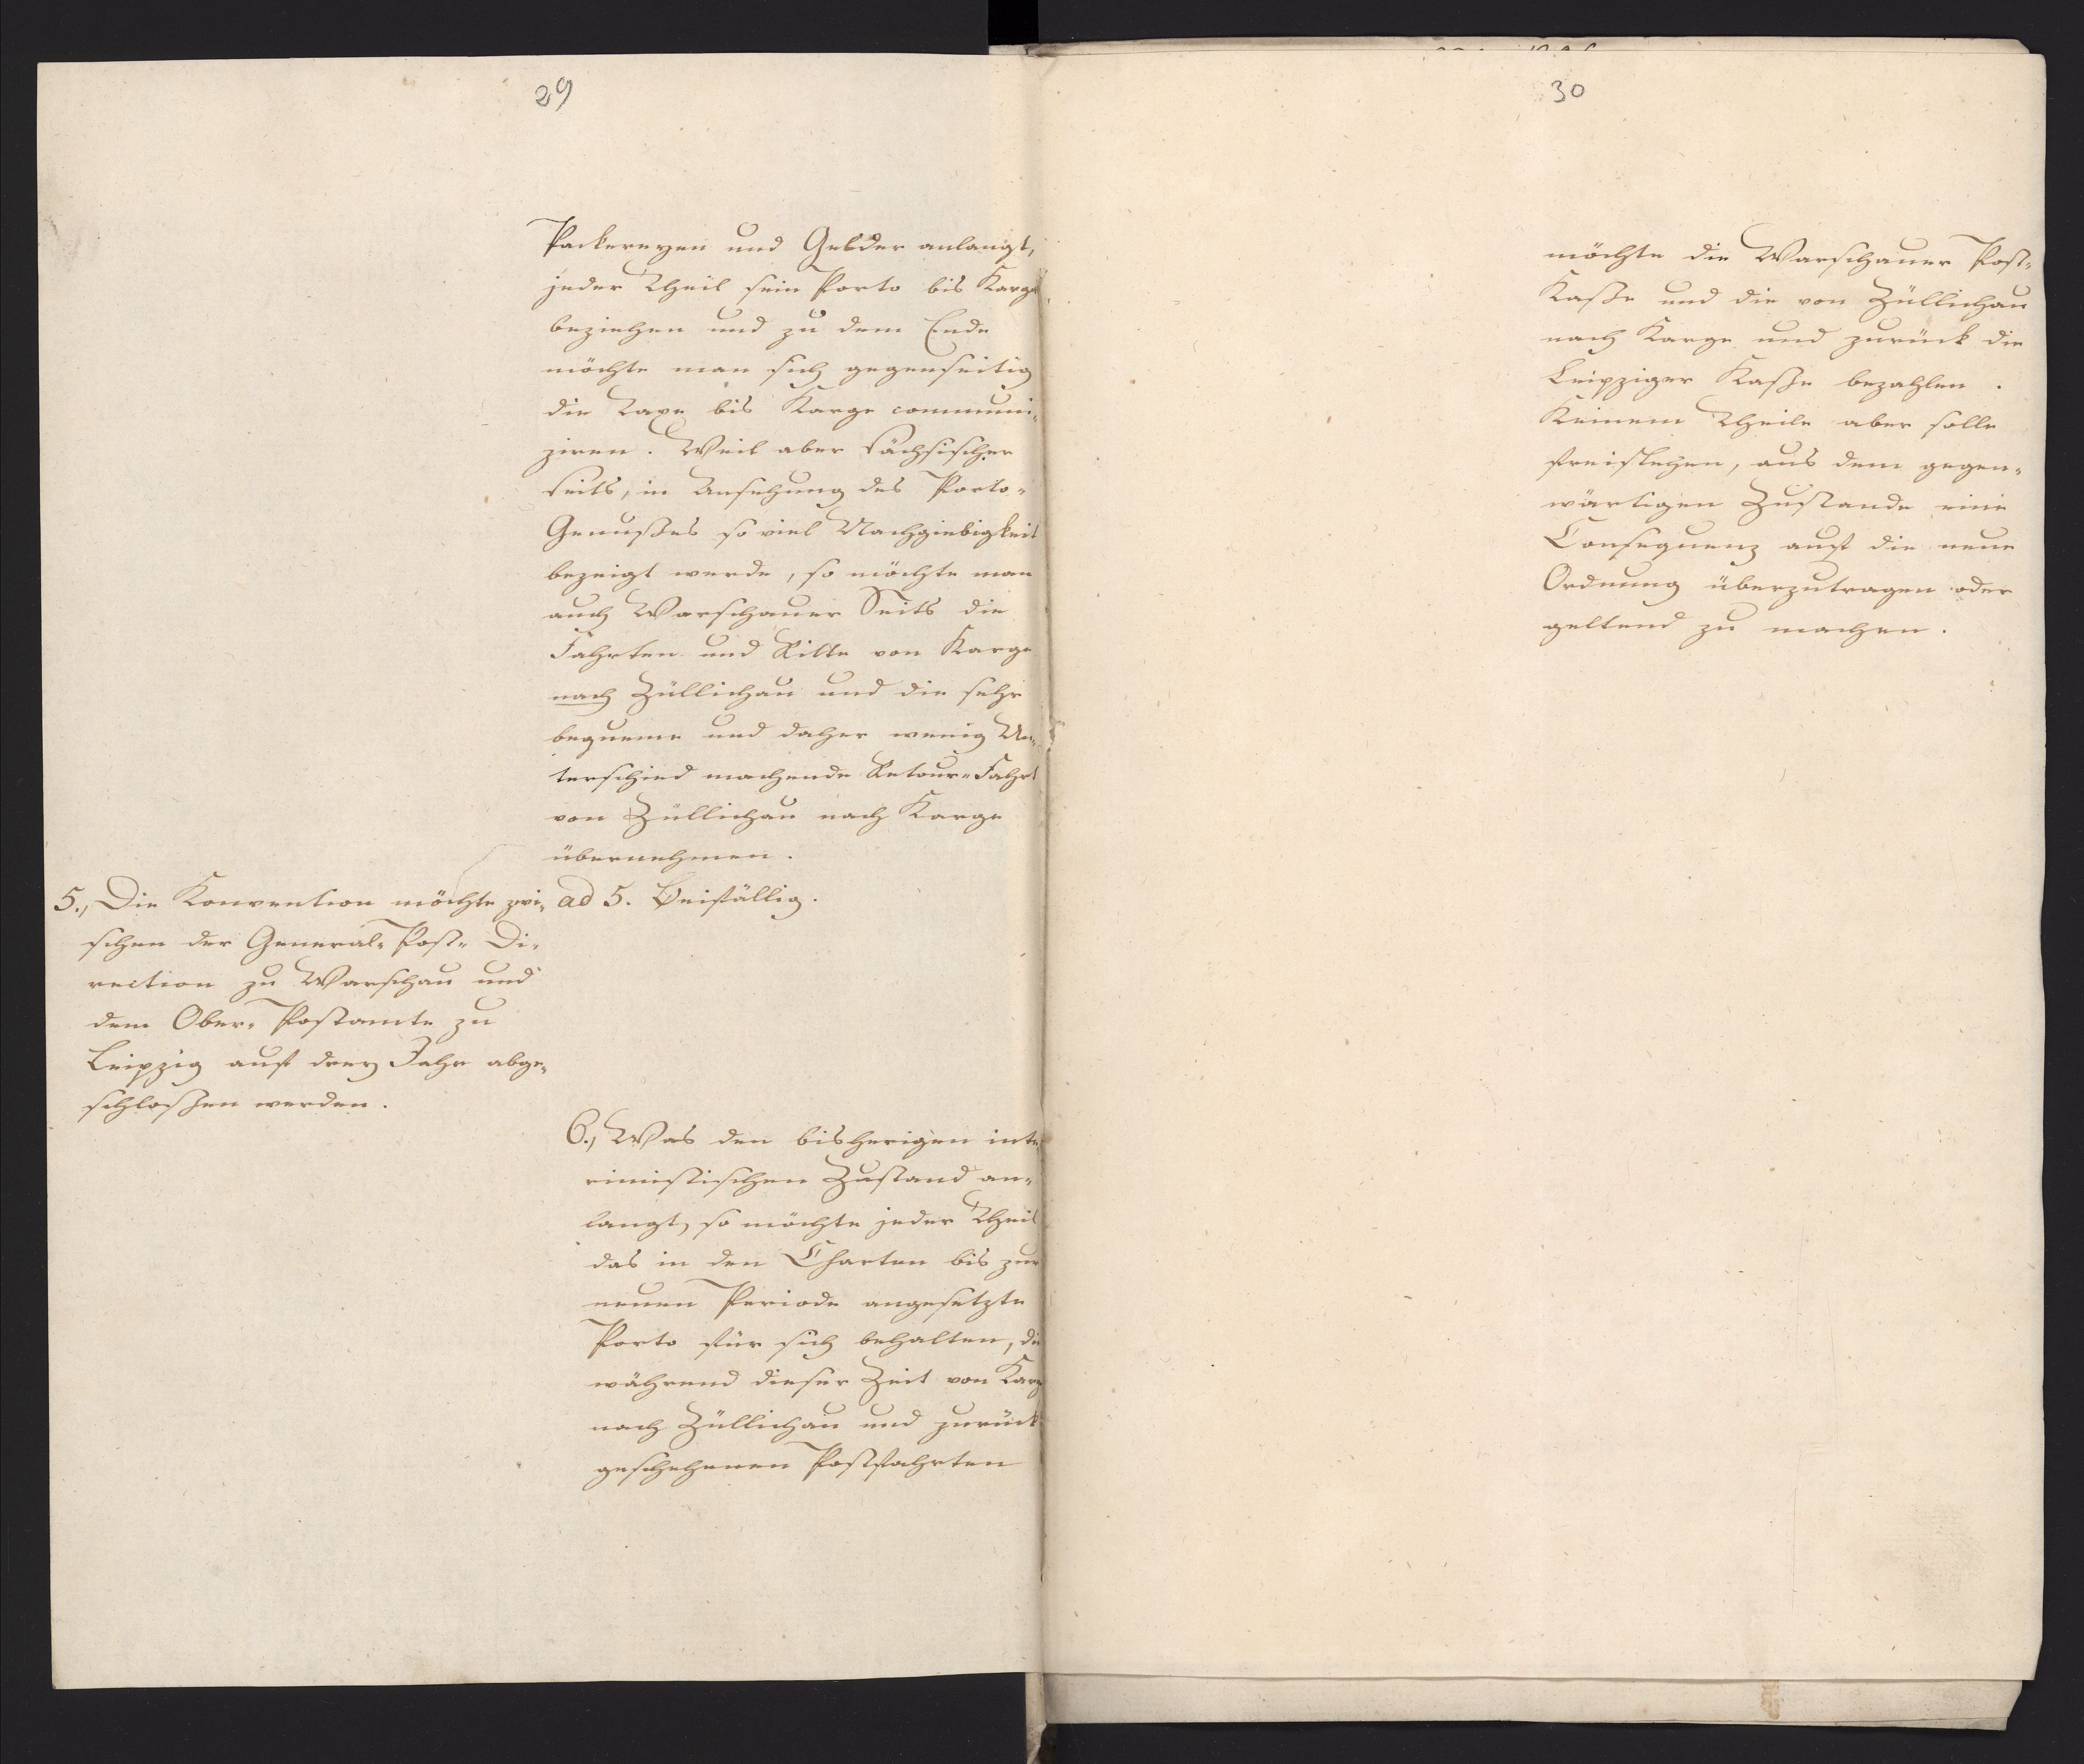 29
Packereyen und Gelder anlangt,
jeder Theil sein Porto bis Karge
beziehen und zu dem Ende
möchte man sich gegenseitig
die Taxe bis Karge communi-
ziren. Weil aber sächsischer
Seits, in Ansehung des Porto-
Genußes so viel Nachgiebigkeit
bezeigt werde, so möchte man
auch Warschauer Seits die
Fahrten und Ritte von Karge
nach Züllichau und die sehr
bequeme und daher wenig Un-
terschied machende Retour-Fahrt
von Züllichau nach Karge
übernehmen.
5., Die Konvention möchte zwi-
schen der General-Post-Di-
rection zu Warschau und
dem Ober-Postamte zu
Leipzig auf drey Jahr abge-
schloßen werden.
ad 5. Beifällig.
6., Was den bisherigen inte-
rimistischen Zustand an-
langt, so möchte jeder Theil
das in den Charten bis zur
neuen Periode angesetzte
Porto für sich behalten, die
während dieser Zeit von Karge
nach Züllichau und zurück
geschehenen Postfahrten
30
möchte die Warschauer Post-
Kaße und die von Züllichau
nach Karge und zurück die
Leipziger Kaße bezahlen.
Keinem Theile aber solle
freistehen, aus dem gegen-
wärtigen Zustande eine
Consequenz auf die neue
Ordnung überzutragen oder
geltend zu machen.